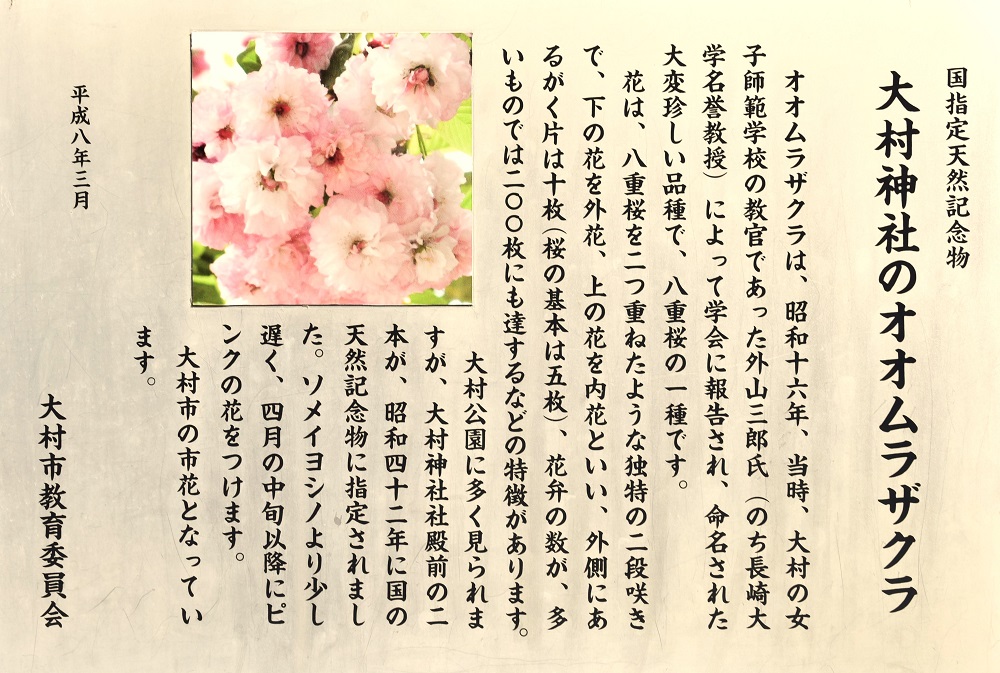 国指定天然記念物
大村神社のオオムラザクラ
オオムラザクラは、昭和十六年、当時、大村の女
子師範学校の教官であった外山三郎氏(のち長崎大
学名誉教授)によって学会に報告され、命名された
大変珍しい品種で、八重桜の一種です。
花は、八重桜を二つ重ねたような独特の二段咲き
で、下の花を外花、上の花を内花といい、外側にあ
るがく片は十枚(桜の基本は五枚)、花弁の数が、多
いものでは二〇〇枚にも達するなどの特徴があります。
大村公園に多く見られま
すが、大村神社社殿前の二
本が、昭和四十二年に国の
天然記念物に指定されまし
た。ソメイヨシノより少し
遅く、四月の中旬以降にピ
ンクの花をつけます。
大村市の市花となってい
ます。
平成八年三月
大村市教育委員会